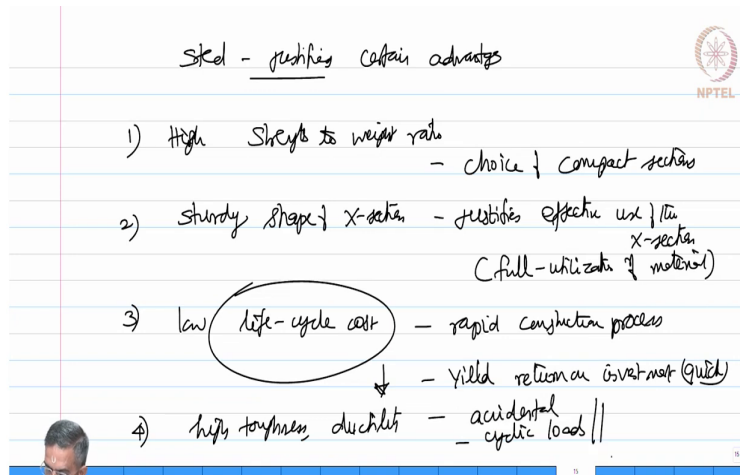 Steel - justifies certain advantags
NPTEL
1) High Strength to weight ratio
- choice of compact sections
2) sturdy shape of X-section - justifies effective use of the
X-section
(full-utilization of material)
3) low life-cycle cost - rapid construction process
- Yield return on investment (quick)
4) high toughness, ductility - accidental
- cyclic loads
15
15